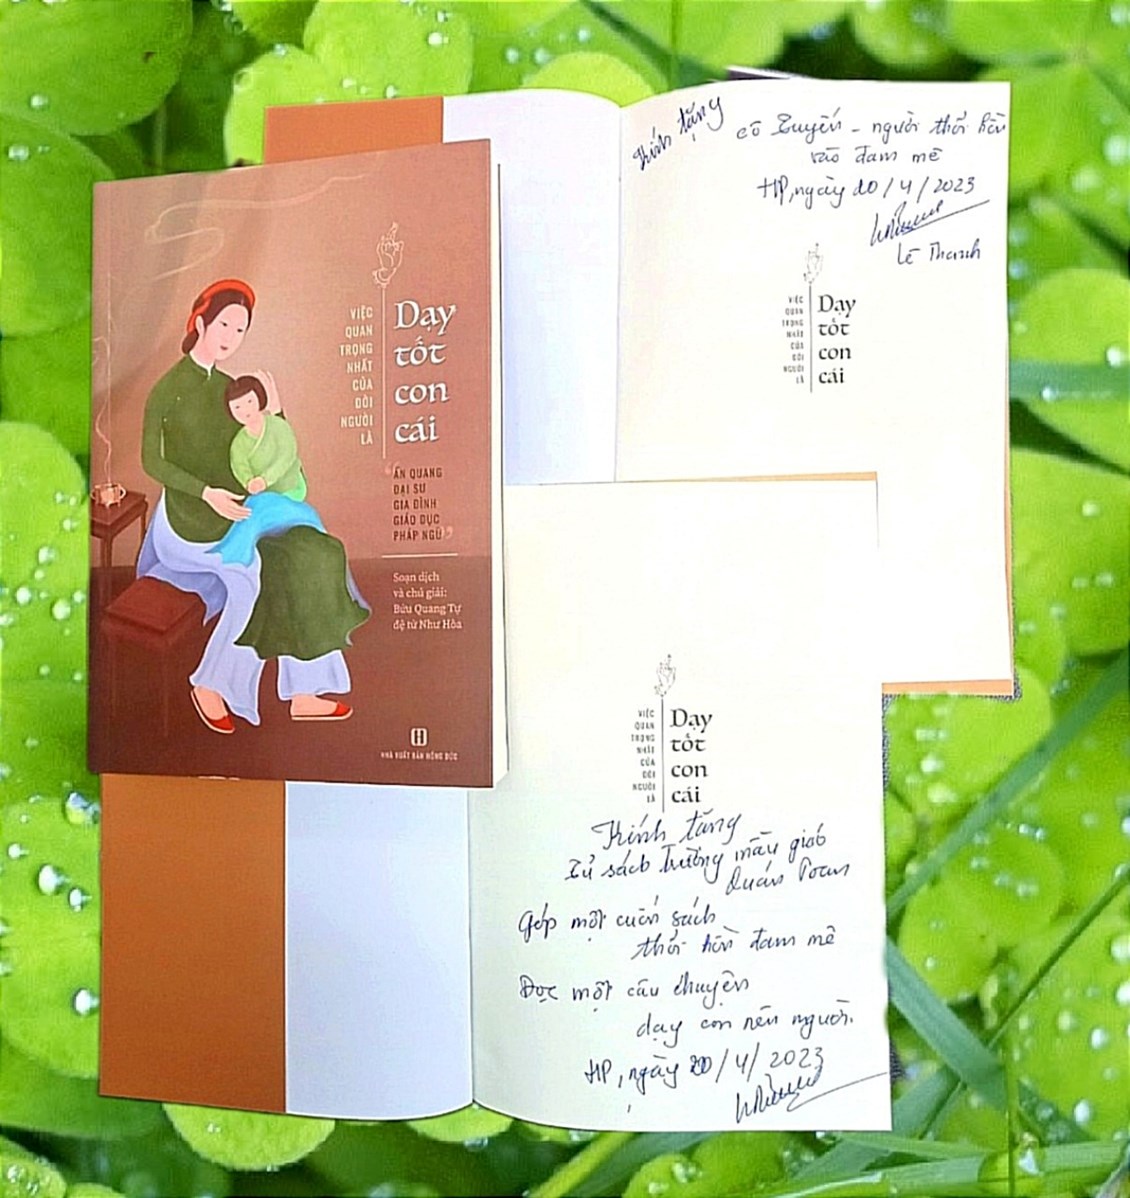 VIỆC
QUAN
TRỌNG
NHẤT
CỦA
ĐỜI
NGƯỜI
LÀ
Dạy
tốt
con
cái
"ẤN QUANG
ĐẠI SƯ
GIA ĐÌNH
GIÁO DỤC
PHÁP NGỮ"
Soạn dịch
và chú giải:
Bửu Quang Tự
đệ tử Như Hòa
NHÀ XUẤT BẢN HỒNG ĐỨC
Kính tặng cô Tuyến - người thổi hồn
vào đam mê
HP, ngày 20/4/2023
Lê Thanh
VIỆC
QUAN
TRỌNG
NHẤT
CỦA
ĐỜI
NGƯỜI
LÀ
Dạy
tốt
con
cái
VIỆC
QUAN
TRỌNG
NHẤT
CỦA
ĐỜI
NGƯỜI
LÀ
Dạy
tốt
con
cái
Kính tặng
Tủ sách trường mẫu giáo
Quán Toan
Góp một cuốn sách
thổi hồn đam mê
Đọc một câu chuyện
dạy con nên người.
HP, ngày 20/4/2023